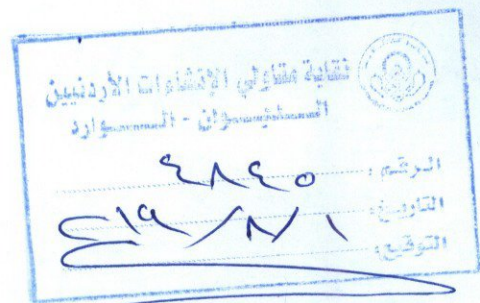 نقابة مقاولي الإنشاءات الأردنيين
الديوان - الوارد
الرقم : ٤٨٤٥
التاريخ : ١ / ٨ /
التوقيع :